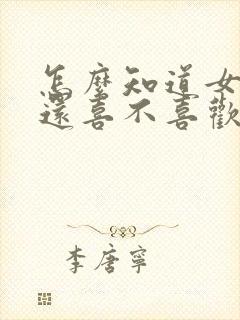 怎麼知道女
還喜不喜歡
李唐寧